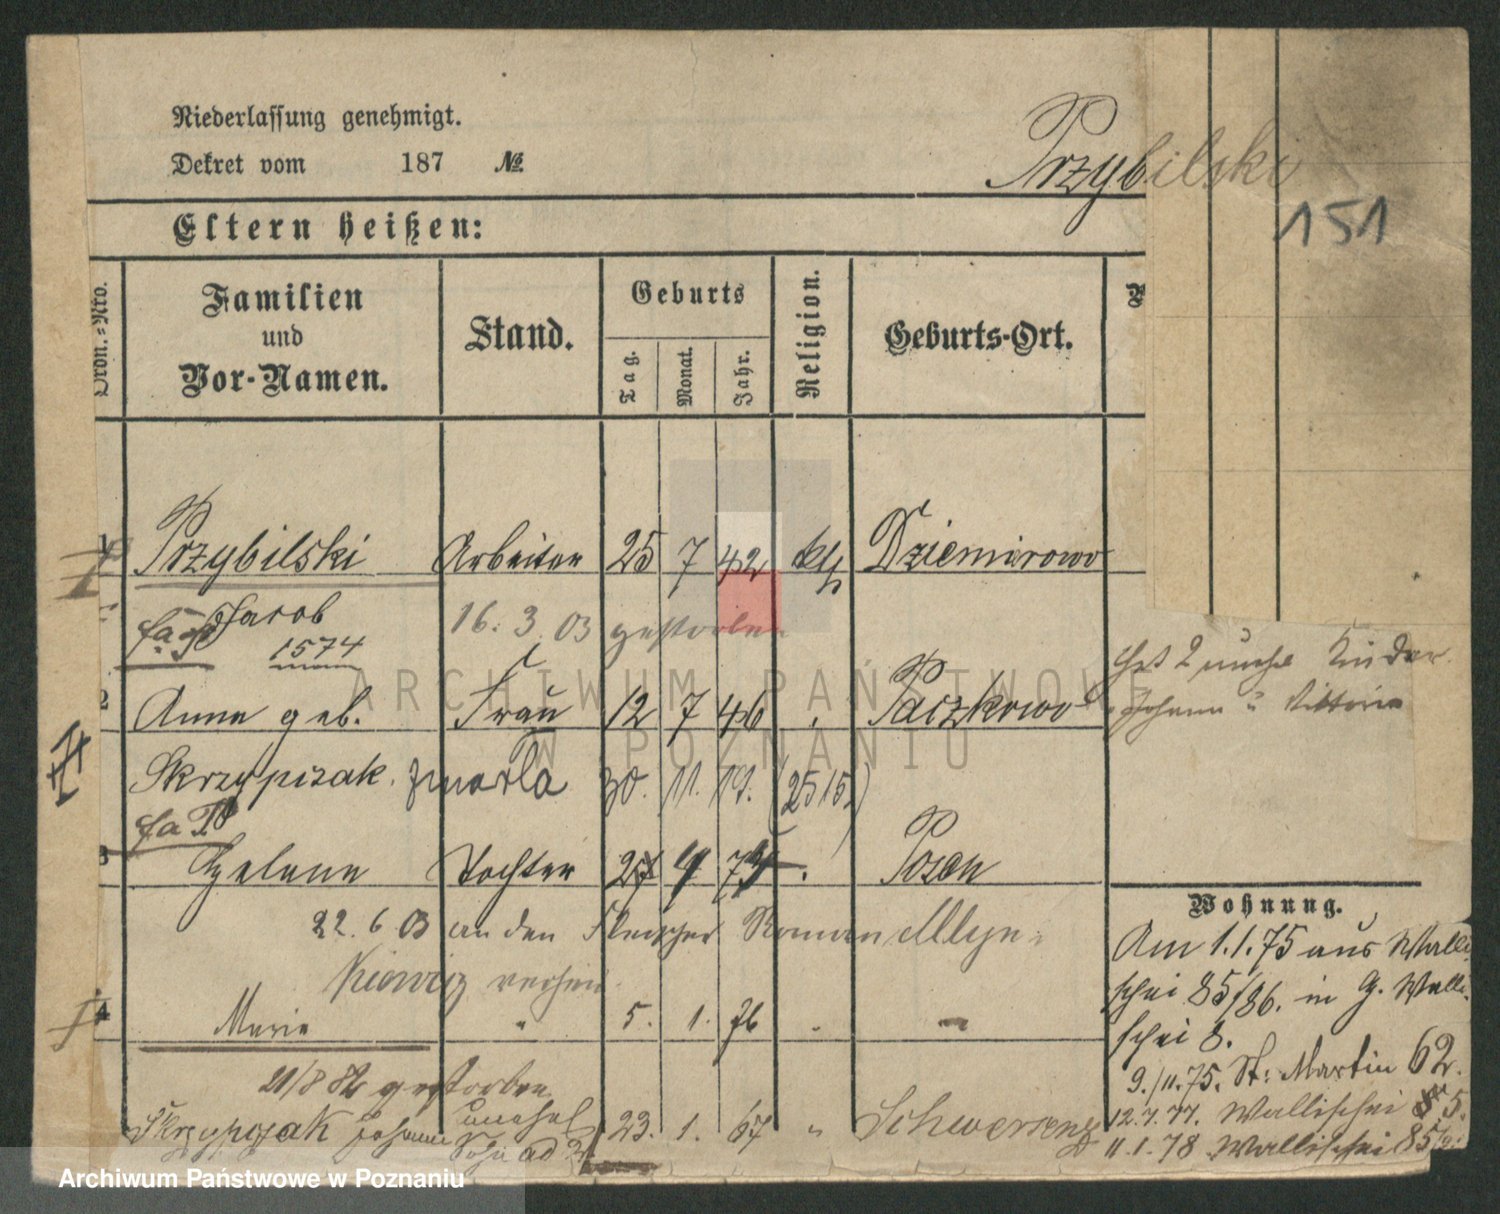 Niederlassung genehmigt.
Dekret vom 187 №
Przybilski
151
Eltern heißen:
Ordn.=Nro.
Familien und Vor-Namen.
Stand.
Geburts
Tag. Monat. Jahr.
Religion.
Geburts-Ort.
1 Przybilski Arbeiter 25 7 42 kth Dziemiarowo
Jacob 16. 3. 03 gestorben
1574
2 Anna geb. Frau 12 7 46 Paczkowo
Skrzypczak. zmarła 30. 11. 19. (2515)
3 Helene Tochter 27 4 73 Posen
22. 6 03 an den Fleischer Roman
4 Marie " 5. 1. 76 "
21/8 82 gestorben
Skrzypczak Johann unehel Sohn ad 2 23. 1. 67 " Schwersenz
hat 2 unehel Kinder
Johann u Viktoria
Wohnung.
Am 1.1.75 aus Walli
schei 85/86. in G. Walli
schei 8.
9./11.75. St: Martin 62.
12.7.77. Wallischei 5.
11.1.78 Wallischei
ARCHIWUM PAŃSTWOWE
W POZNANIU
Archiwum Państwowe w Poznaniu